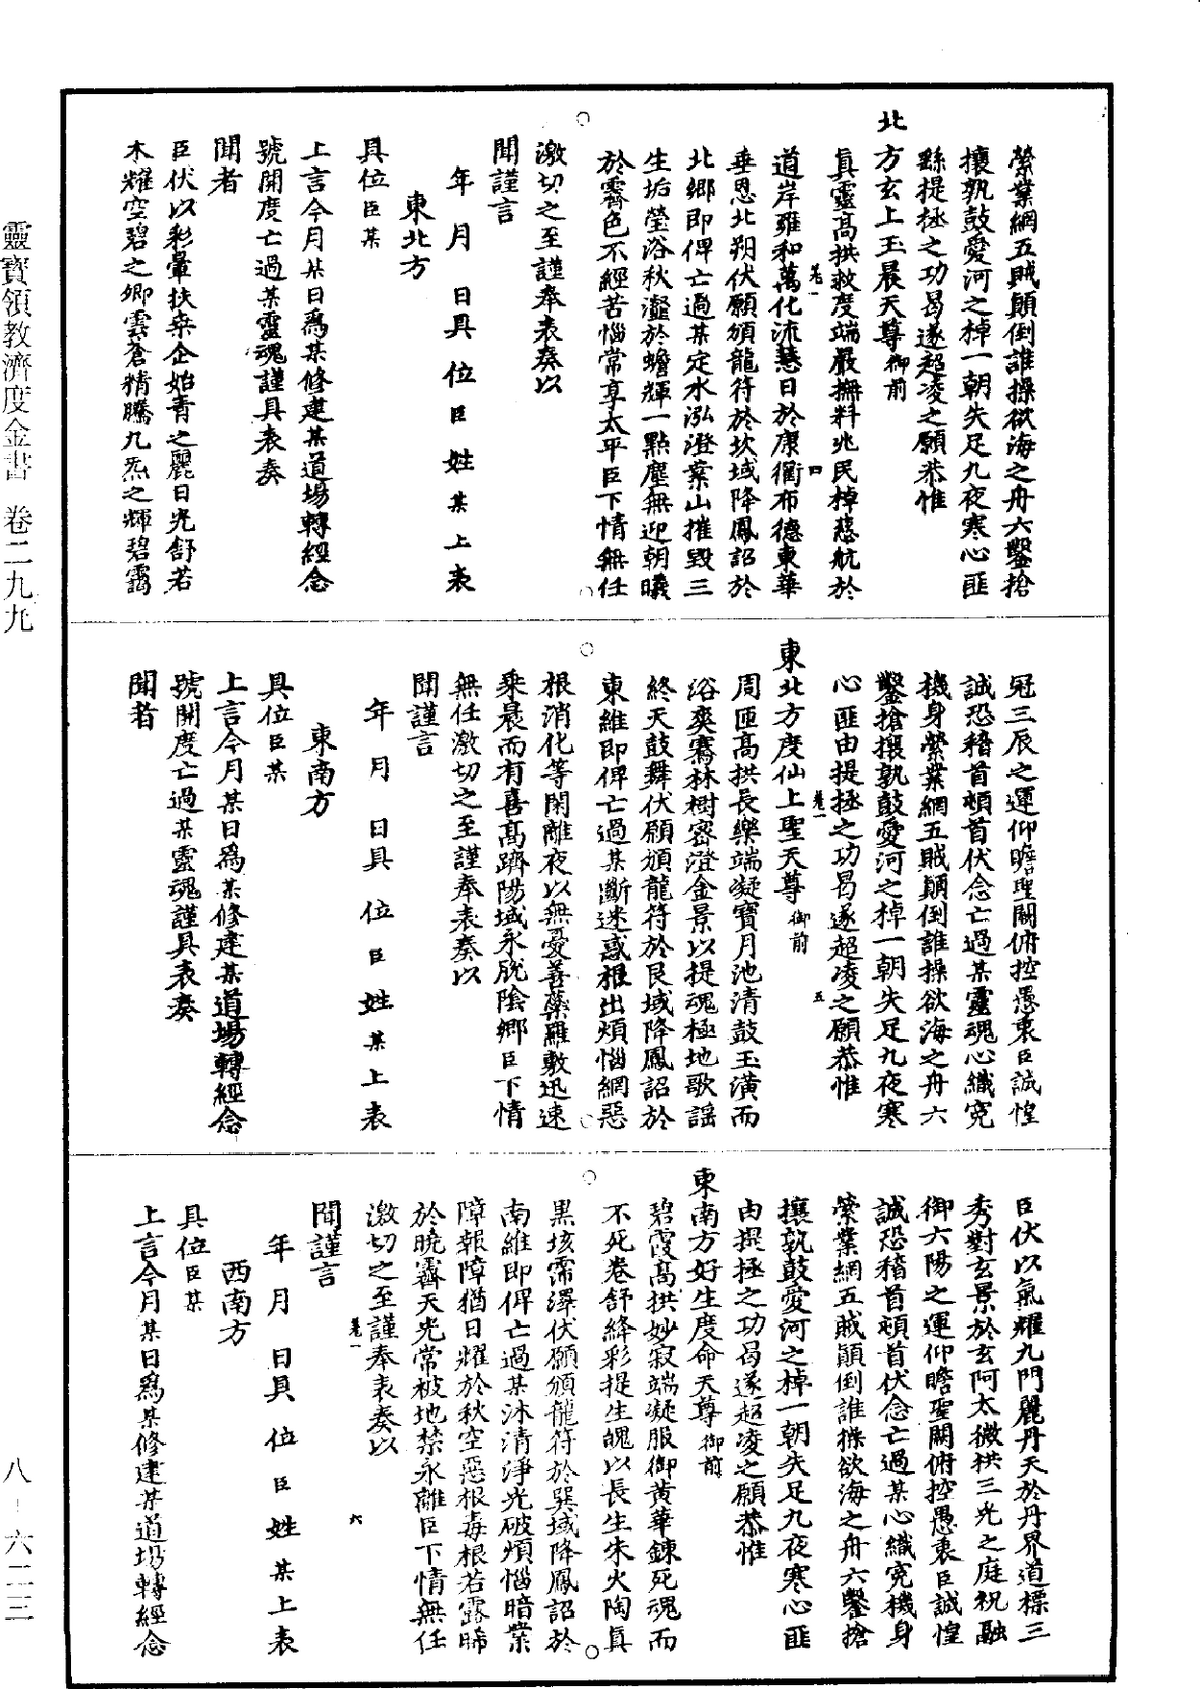 縈業網五賊顛倒誰操欲海之舟六鑿搶
攘孰鼓愛河之棹一朝失足九夜寒心匪
繇提拯之功曷遂超凌之願恭惟
北方玄上玉晨天尊御前
真靈高拱救度端嚴撫料兆民棹慈航於
卷一 四
道岸雍和萬化流慧日於康衢布德東華
垂恩北朔伏願頒龍符於坎域降鳳詔於
北鄉即俾亡過某定水泓澄業山摧毀三
生垢瑩浴秋灔於蟾輝一點塵無迎朝曦
於霽色不經苦惱常享太平臣下情無任
激切之至謹奉表奏以
聞謹言
年 月 日具 位臣姓某上表
東北方
具位臣某
上言今月某日為某修建某道場轉經念
號開度亡過某靈魂謹具表奏
聞者
臣伏以彩暈扶桒企始青之麗日光舒若
木耀空碧之卿雲蒼精騰九炁之輝碧靄
冠三辰之運仰瞻聖闕俯控愚衷臣誠惶
誠恐稽首頓首伏念亡過某靈魂心織寃
機身縈業網五賊顛倒誰操欲海之舟六
鑿搶攘孰鼓愛河之棹一朝失足九夜寒
心匪由提拯之功曷遂超凌之願恭惟
卷一 五
東北方度仙上聖天尊御前
周匝高拱長樂端凝寶月池清鼓玉潢而
浴奕騫林樹密澄金景以提魂極地歌謡
終天鼓舞伏願頒龍符於艮域降鳳詔於
東維即俾亡過某斷迷惑根出煩惱網惡
根消化等閑離夜以無憂善藥羅敷迅速
乘晨而有喜高躋陽域永脫陰鄉臣下情
無任激切之至謹奉表奏以
聞謹言
年 月 日具 位臣姓某上表
東南方
具位臣某
上言今月某日為某修建某道場轉經念
號開度亡過某靈魂謹具表奏
聞者
臣伏以氣耀九門麗丹天於丹界道標三
秀對玄景於玄阿太微拱三光之庭祝融
御六陽之運仰瞻聖闕俯控愚衷臣誠惶
誠恐稽首頓首伏念亡過某心織寃機身
縈業網五賊顛倒誰操欲海之舟六鑿搶
攘孰鼓愛河之棹一朝失足九夜寒心匪
由提拯之功曷遂超凌之願恭惟
東南方好生度命天尊御前
碧霞高拱妙寂端凝服御黄華鍊死魂而
不死卷舒絳彩提生魄以長生朱火陶真
黑垓霈澤伏願頒龍符於巽域降鳳詔於
南維即俾亡過某沐清淨光破煩惱暗業
障報障猶日耀於秋空惡根毒根若露晞
於曉霽天光常被地禁永離臣下情無任
激切之至謹奉表奏以
卷一 六
聞謹言
年 月 日具 位臣姓某上表
西南方
具位臣某
上言今月某日為某修建某道場轉經念
靈寶領教濟度金書 卷二九九
八-六二三